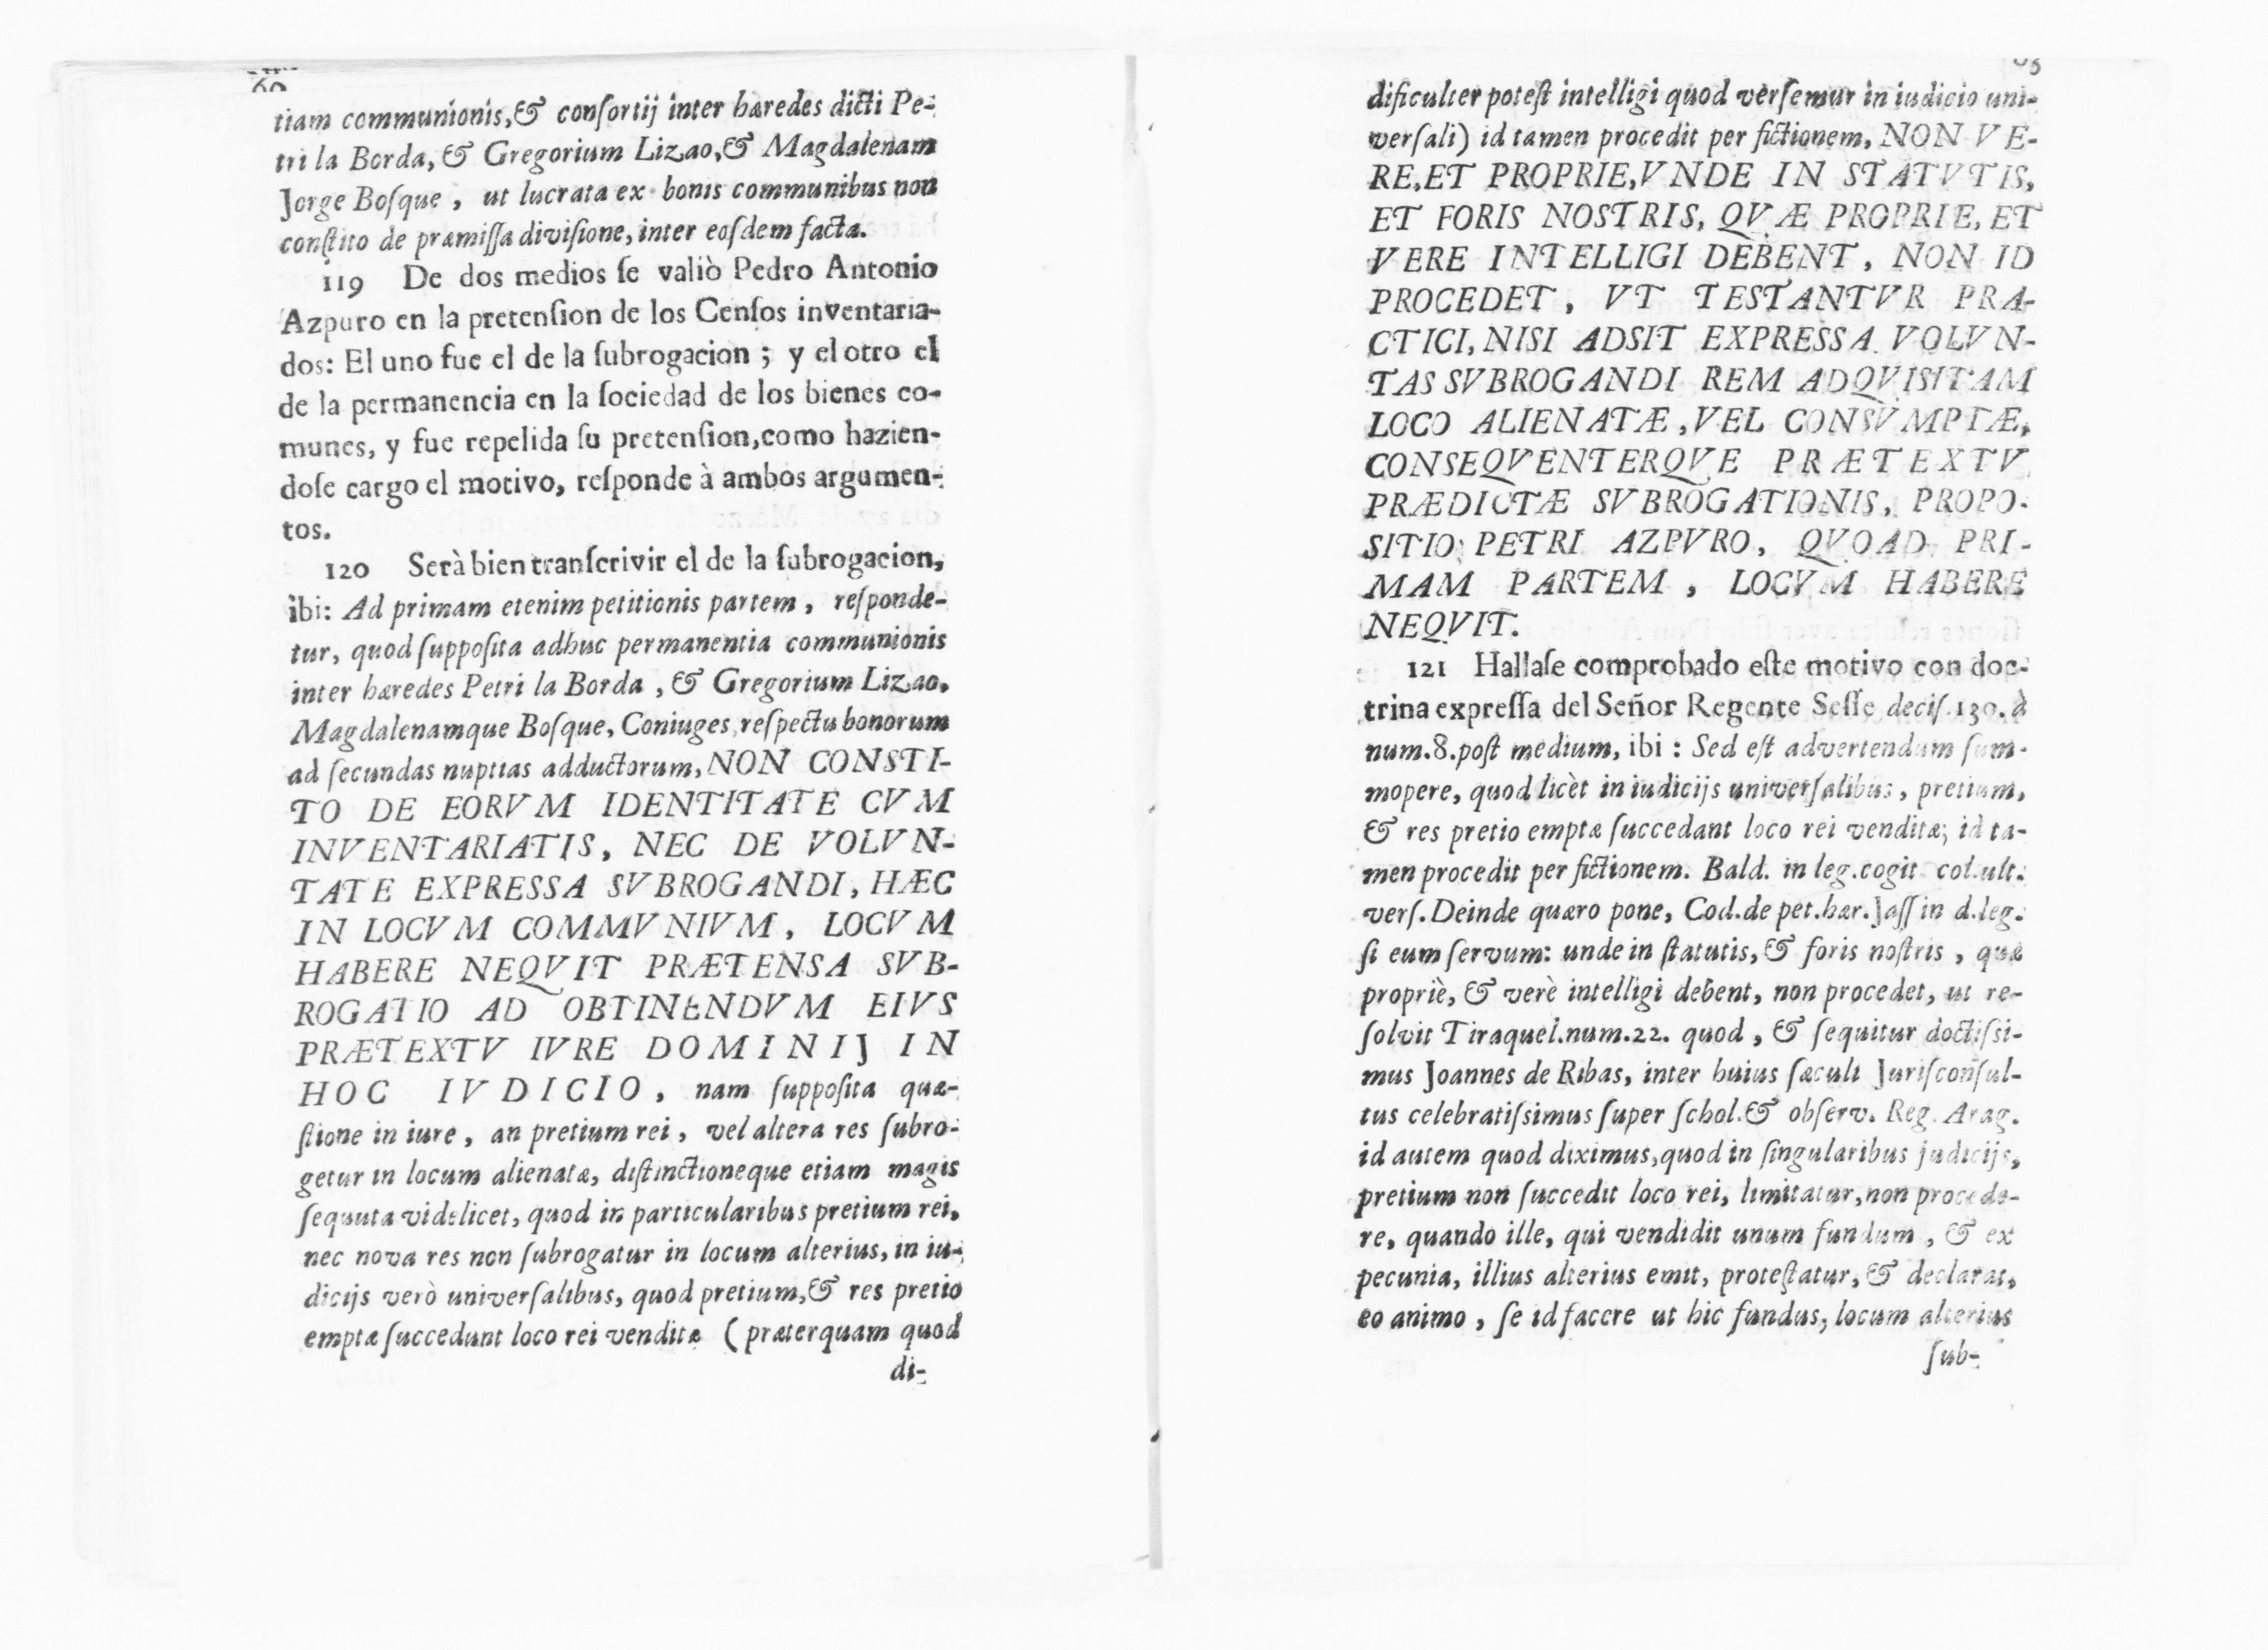 tiam communionis,& conſortij inter hæredes dicti Pe-
tri la Borda, & Gregorium Lizao,& Magdalenam
Jorge Boſque , ut lucrata ex bonis communibus non
conſtito de præmiſſa diviſione, inter eoſdem facta.
119 De dos medios ſe valiò Pedro Antonio
Azpuro en la pretenſion de los Cenſos inventaria-
dos: El uno fue el de la ſubrogacion ; y el otro el
de la permanencia en la ſociedad de los bienes co-
munes, y fue repelida ſu pretenſion,como hazien-
doſe cargo el motivo, reſponde à ambos argumen-
tos.
120 Serà bien tranſcrivir el de la ſubrogacion,
ibi: Ad primam etenim petitionis partem , reſponde-
tur, quod ſuppoſita adhuc permanentia communionis
inter hæredes Petri la Borda , & Gregorium Lizao,
Magdalenamque Boſque, Coniuges, reſpectu bonorum
ad ſecundas nuptias adductorum, NON CONSTI-
TO DE EORVM IDENTITATE CVM
INVENTARIATIS, NEC DE VOLVN-
TATE EXPRESSA SVBROGANDI, HÆC
IN LOCVM COMMVNIVM, LOCVM
HABERE NEQVIT PRÆTENSA SVB-
ROGATIO AD OBTINENDVM EIVS
PRÆTEXTV IVRE DOMINIJ IN
HOC IVDICIO, nam ſuppoſita quæ-
ſtione in iure , an pretium rei , vel altera res ſubro-
getur in locum alienatæ, diſtinctioneque etiam magis
ſequuta videlicet, quod in particularibus pretium rei,
nec nova res non ſubrogatur in locum alterius, in iu-
dicijs verò univerſalibus, quod pretium,& res pretio
emptæ ſuccedunt loco rei venditæ (præterquam quod
di-
dificulter poteſt intelligi quod verſemur in iudicio uni-
verſali) id tamen procedit per fictionem, NON VE-
RE,ET PROPRIE,VNDE IN STATVTIS,
ET FORIS NOSTRIS, QVÆ PROPRIE, ET
VERE INTELLIGI DEBENT, NON ID
PROCEDET, VT TESTANTVR PRA-
CTICI, NISI ADSIT EXPRESSA VOLVN-
TAS SVBROGANDI REM ADQVISITAM
LOCO ALIENATÆ,VEL CONSVMPTÆ,
CONSEQVENTERQVE PRÆTEXTV
PRÆDICTÆ SVBROGATIONIS, PROPO-
SITIO PETRI AZPVRO, QVOAD PRI-
MAM PARTEM, LOCVM HABERE
NEQVIT.
121 Hallaſe comprobado eſte motivo con doc-
trina expreſſa del Señor Regente Seſſe deciſ.130. à
num.8.poſt medium, ibi : Sed eſt advertendum ſum-
mopere, quod licèt in iudicijs univerſalibus, pretium,
& res pretio emptæ ſuccedant loco rei venditæ; id ta-
men procedit per fictionem. Bald. in leg.cogit col.ult.
verſ.Deinde quæro pone, Cod.de pet.hær.Jaſſ in d.leg.
ſi eum ſervum: unde in ſtatutis,& foris noſtris , quæ
propriè, & verè intelligi debent, non procedet, ut re-
ſolvit Tiraquel.num.22. quod , & ſequitur doctiſsi-
mus Joannes de Ribas, inter huius ſæculi Juriſconſul-
tus celebratiſsimus ſuper ſchol.& obſerv. Reg. Arag.
id autem quod diximus,quod in ſingularibus judicijs,
pretium non ſuccedit loco rei, limitatur,non procede-
re, quando ille, qui vendidit unum fundum , & ex
pecunia, illius alterius emit, proteſtatur, & declarat,
eo animo , ſe id facere ut hic fundus, locum alterius
ſub-